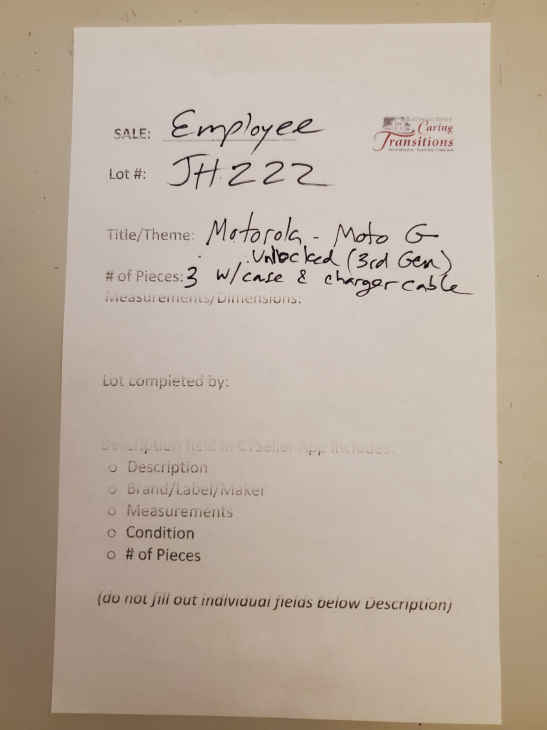 SALE: Employee
Caring
Transitions
Lot #: JH222
Title/Theme: Motorola - Moto G
Unlocked (3rd Gen)
# of Pieces: 3 w/case & charger cable
Measurements/Dimensions:
Lot completed by:
Description field in CTSeller App includes:
o Description
o Brand/Label/Maker
o Measurements
o Condition
o # of Pieces
(do not fill out individual fields below Description)